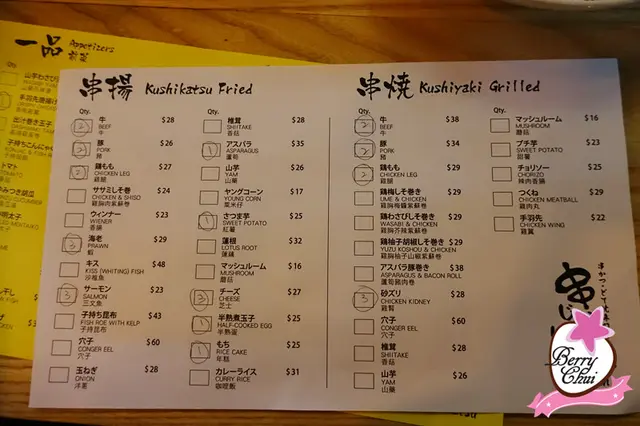 一品 Appetizers
前菜
串揚 Kushikatsu Fried
Qty.
2 牛 $28
BEEF
牛
2 豚 $26
PORK
豬
2 鶏もも $27
CHICKEN LEG
雞腿
ササミしそ巻き $24
CHICKEN & SHISO
雞肉紫蘇卷
ウィンナー $23
WIENER
香腸
3 海老 $29
PRAWN
蝦
キス $48
KISS (WHITING) FISH
沙鑚魚
3 サーモン $23
SALMON
三文魚
子持ち昆布 $43
FISH ROE WITH KELP
子持昆布
穴子 $60
CONGER EEL
穴子
玉ねぎ $28
ONION
洋蔥
Qty.
椎茸 $28
SHIITAKE
香菇
1 アスパラ $35
ASPARAGUS
蘆筍
山芋 $26
YAM
山藥
ヤングコーン $17
YOUNG CORN
粟米仔
1 さつま芋 $25
SWEET POTATO
紅薯
蓮根 $32
LOTUS ROOT
蓮藕
マッシュルーム $16
MUSHROOM
蘑菇
3 チーズ $27
CHEESE
芝士
1 半熟煮玉子 $25
HALF-COOKED EGG
半熟蛋
1 もち $25
RICE CAKE
年糕
カレーライス $31
CURRY RICE
咖喱飯
串焼 Kushiyaki Grilled
Qty.
2 牛 $38
BEEF
牛
2 豚 $34
PORK
豬
2 鶏もも $29
CHICKEN LEG
雞腿
鶏梅しそ巻き $29
UME & CHICKEN
雞胸梅醬紫蘇卷
鶏わさびしそ巻き $29
WASABI & CHICKEN
雞胸芥辣紫蘇卷
鶏柚子胡椒しそ巻き $29
YUZU KOSHOU & CHICKEN
雞胸柚子山椒紫蘇卷
アスパラ豚巻き $38
ASPARAGUS & BACON ROLL
蘆筍豬肉卷
3 砂ズリ $28
CHICKEN KIDNEY
雞腎
穴子 $60
CONGER EEL
穴子
椎茸 $28
SHIITAKE
香菇
山芋 $26
YAM
山藥
Qty.
マッシュルーム $16
MUSHROOM
蘑菇
プチ芋 $23
SWEET POTATO
甜薯
チョリソー $25
CHORIZO
辣肉香腸
つくね $29
CHICKEN MEATBALL
雞肉丸
手羽先 $22
CHICKEN WING
雞翼
Berry
Chui